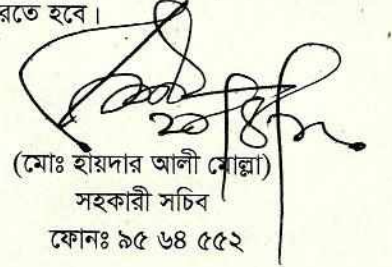 রতে হবে।
(মোঃ হায়দার আলী মোল্লা)
সহকারী সচিব
ফোনঃ ৯৫ ৬৪ ৫৫২